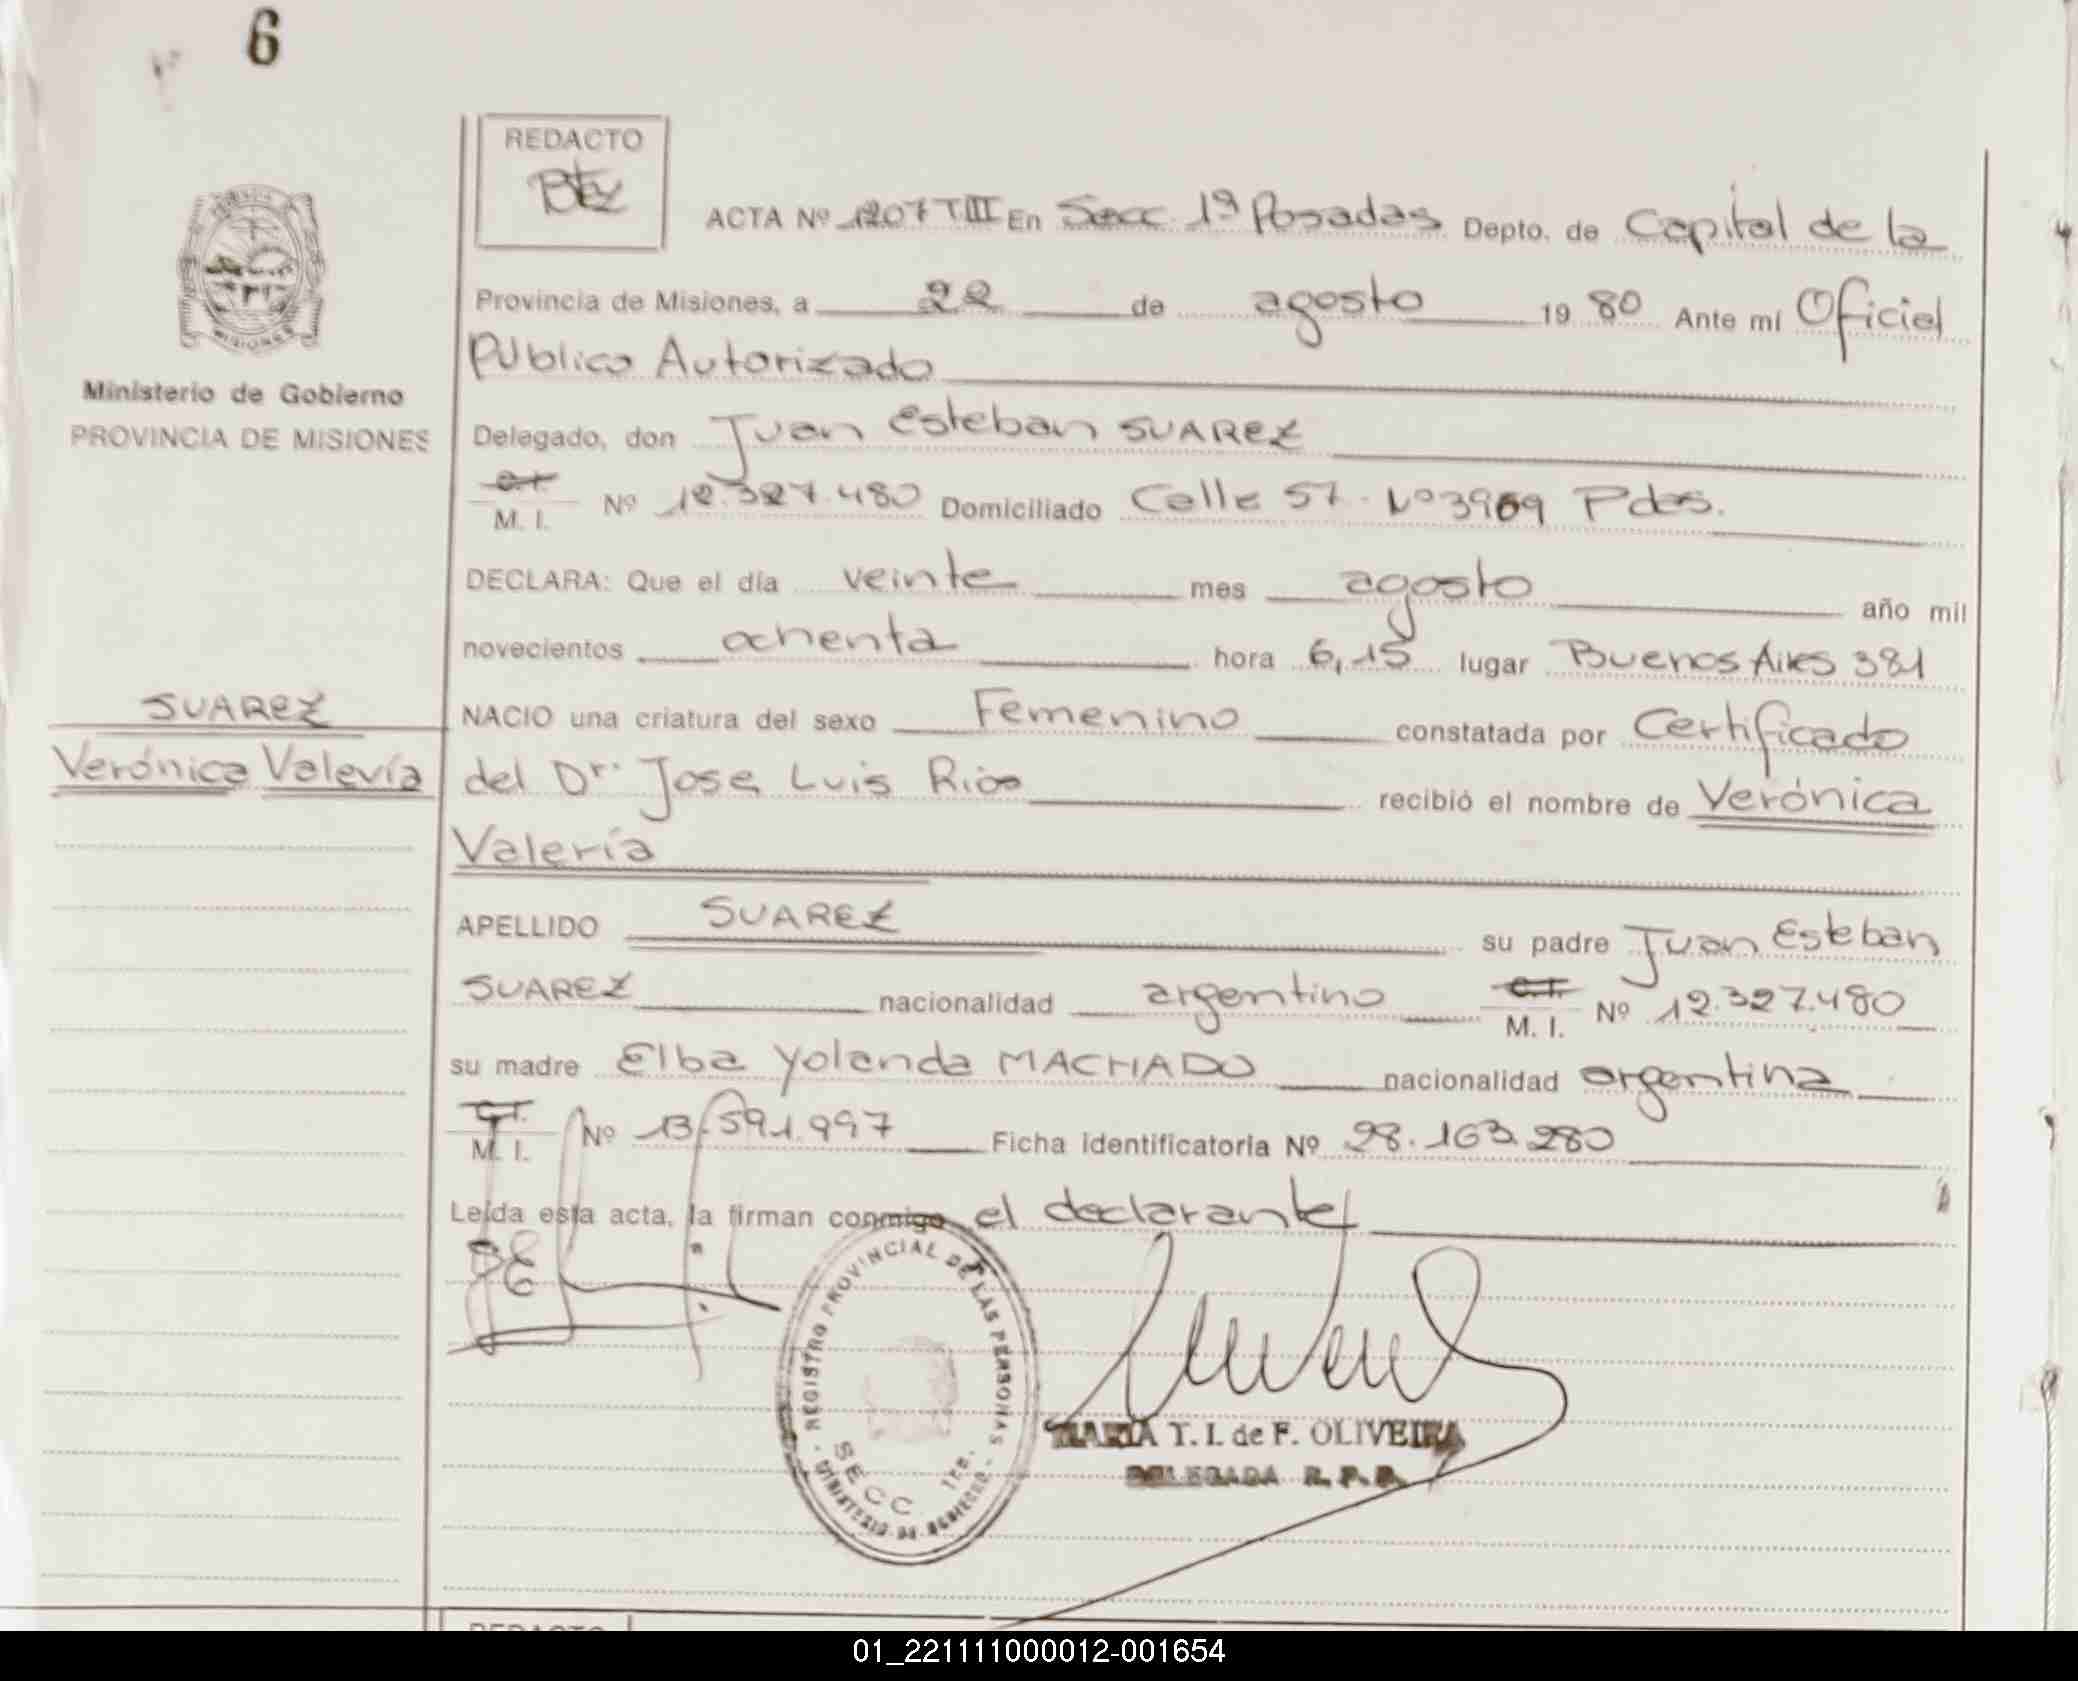 6
REDACTO
Btez
ACTA Nº 1207 TIII En Secc. 1ª Posadas Depto. de Capital de la
Provincia de Misiones, a 22 de agosto 1980 Ante mí Oficial
Público Autorizado
Ministerio de Gobierno
PROVINCIA DE MISIONES
Delegado, don Juan Esteban SUAREZ
C.I.
M. I. Nº 12.327.480 Domiciliado Calle 57 - Nº 3969 Pdas.
DECLARA: Que el día veinte mes agosto año mil
novecientos ochenta hora 6,15 lugar Buenos Aires 381
SUAREZ
Verónica Valería
NACIO una criatura del sexo Femenino constatada por Certificado
del Dr. Jose Luis Rios recibió el nombre de Verónica
Valería
APELLIDO SUAREZ su padre Juan Esteban
SUAREZ nacionalidad argentino C.I. M. I. Nº 12.327.480
su madre Elba Yolanda MACHADO nacionalidad argentina
C.I.
M. I. Nº 13.591.997 Ficha identificatoria Nº 28.163.280
Leída esta acta, la firman conmigo el declarante
REGISTRO PROVINCIAL DE LAS PERSONAS
SECC 1ra.
MINISTERIO DE GOBIERNO
MARIA T. I. de F. OLIVEIRA
DELEGADA R. P. P.
REDACTO
01_221111000012-001654